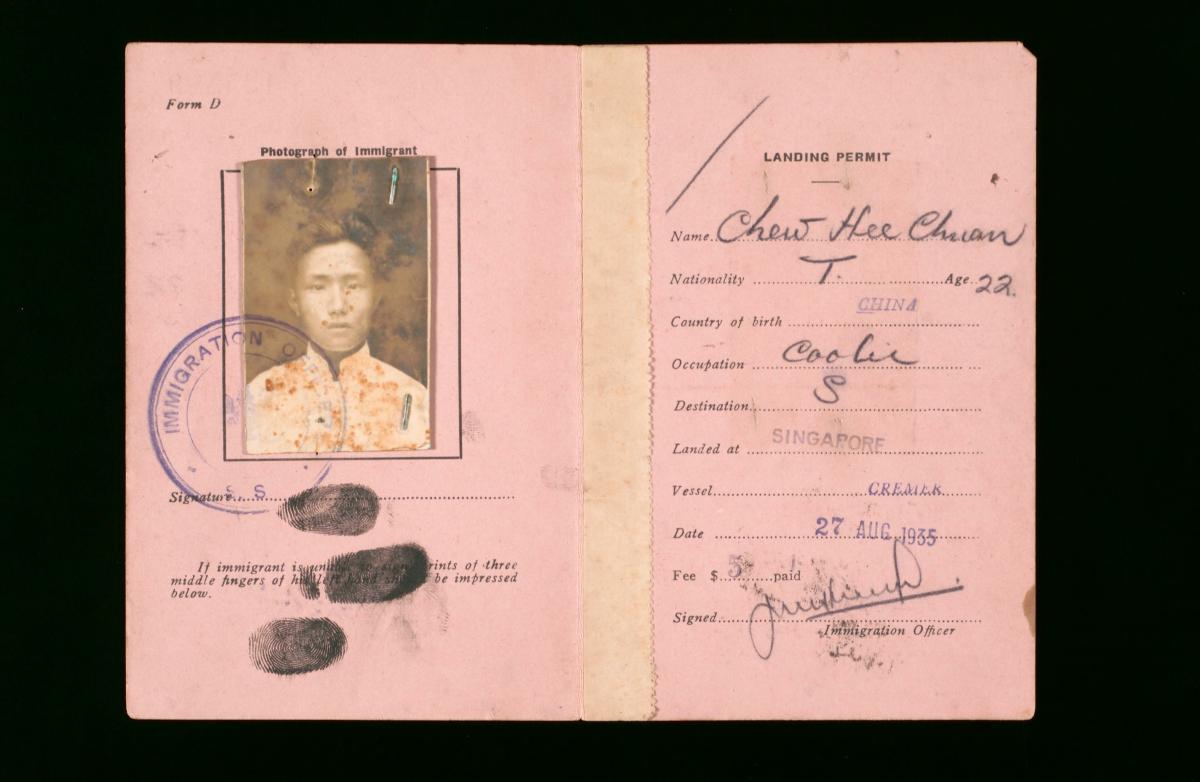 Form D
Photograph of Immigrant
IMMIGRATION
S. S
Signature
If immigrant is unable to sign prints of three
middle fingers of his left hand should be impressed
below.
LANDING PERMIT
Name Chew Hee Chuan
Nationality T. Age 22.
CHINA
Country of birth
Occupation Coolie
Destination S
Landed at SINGAPORE
Vessel CREMER
Date 27 AUG 1935
Fee $ 5 paid
Signed
Immigration Officer